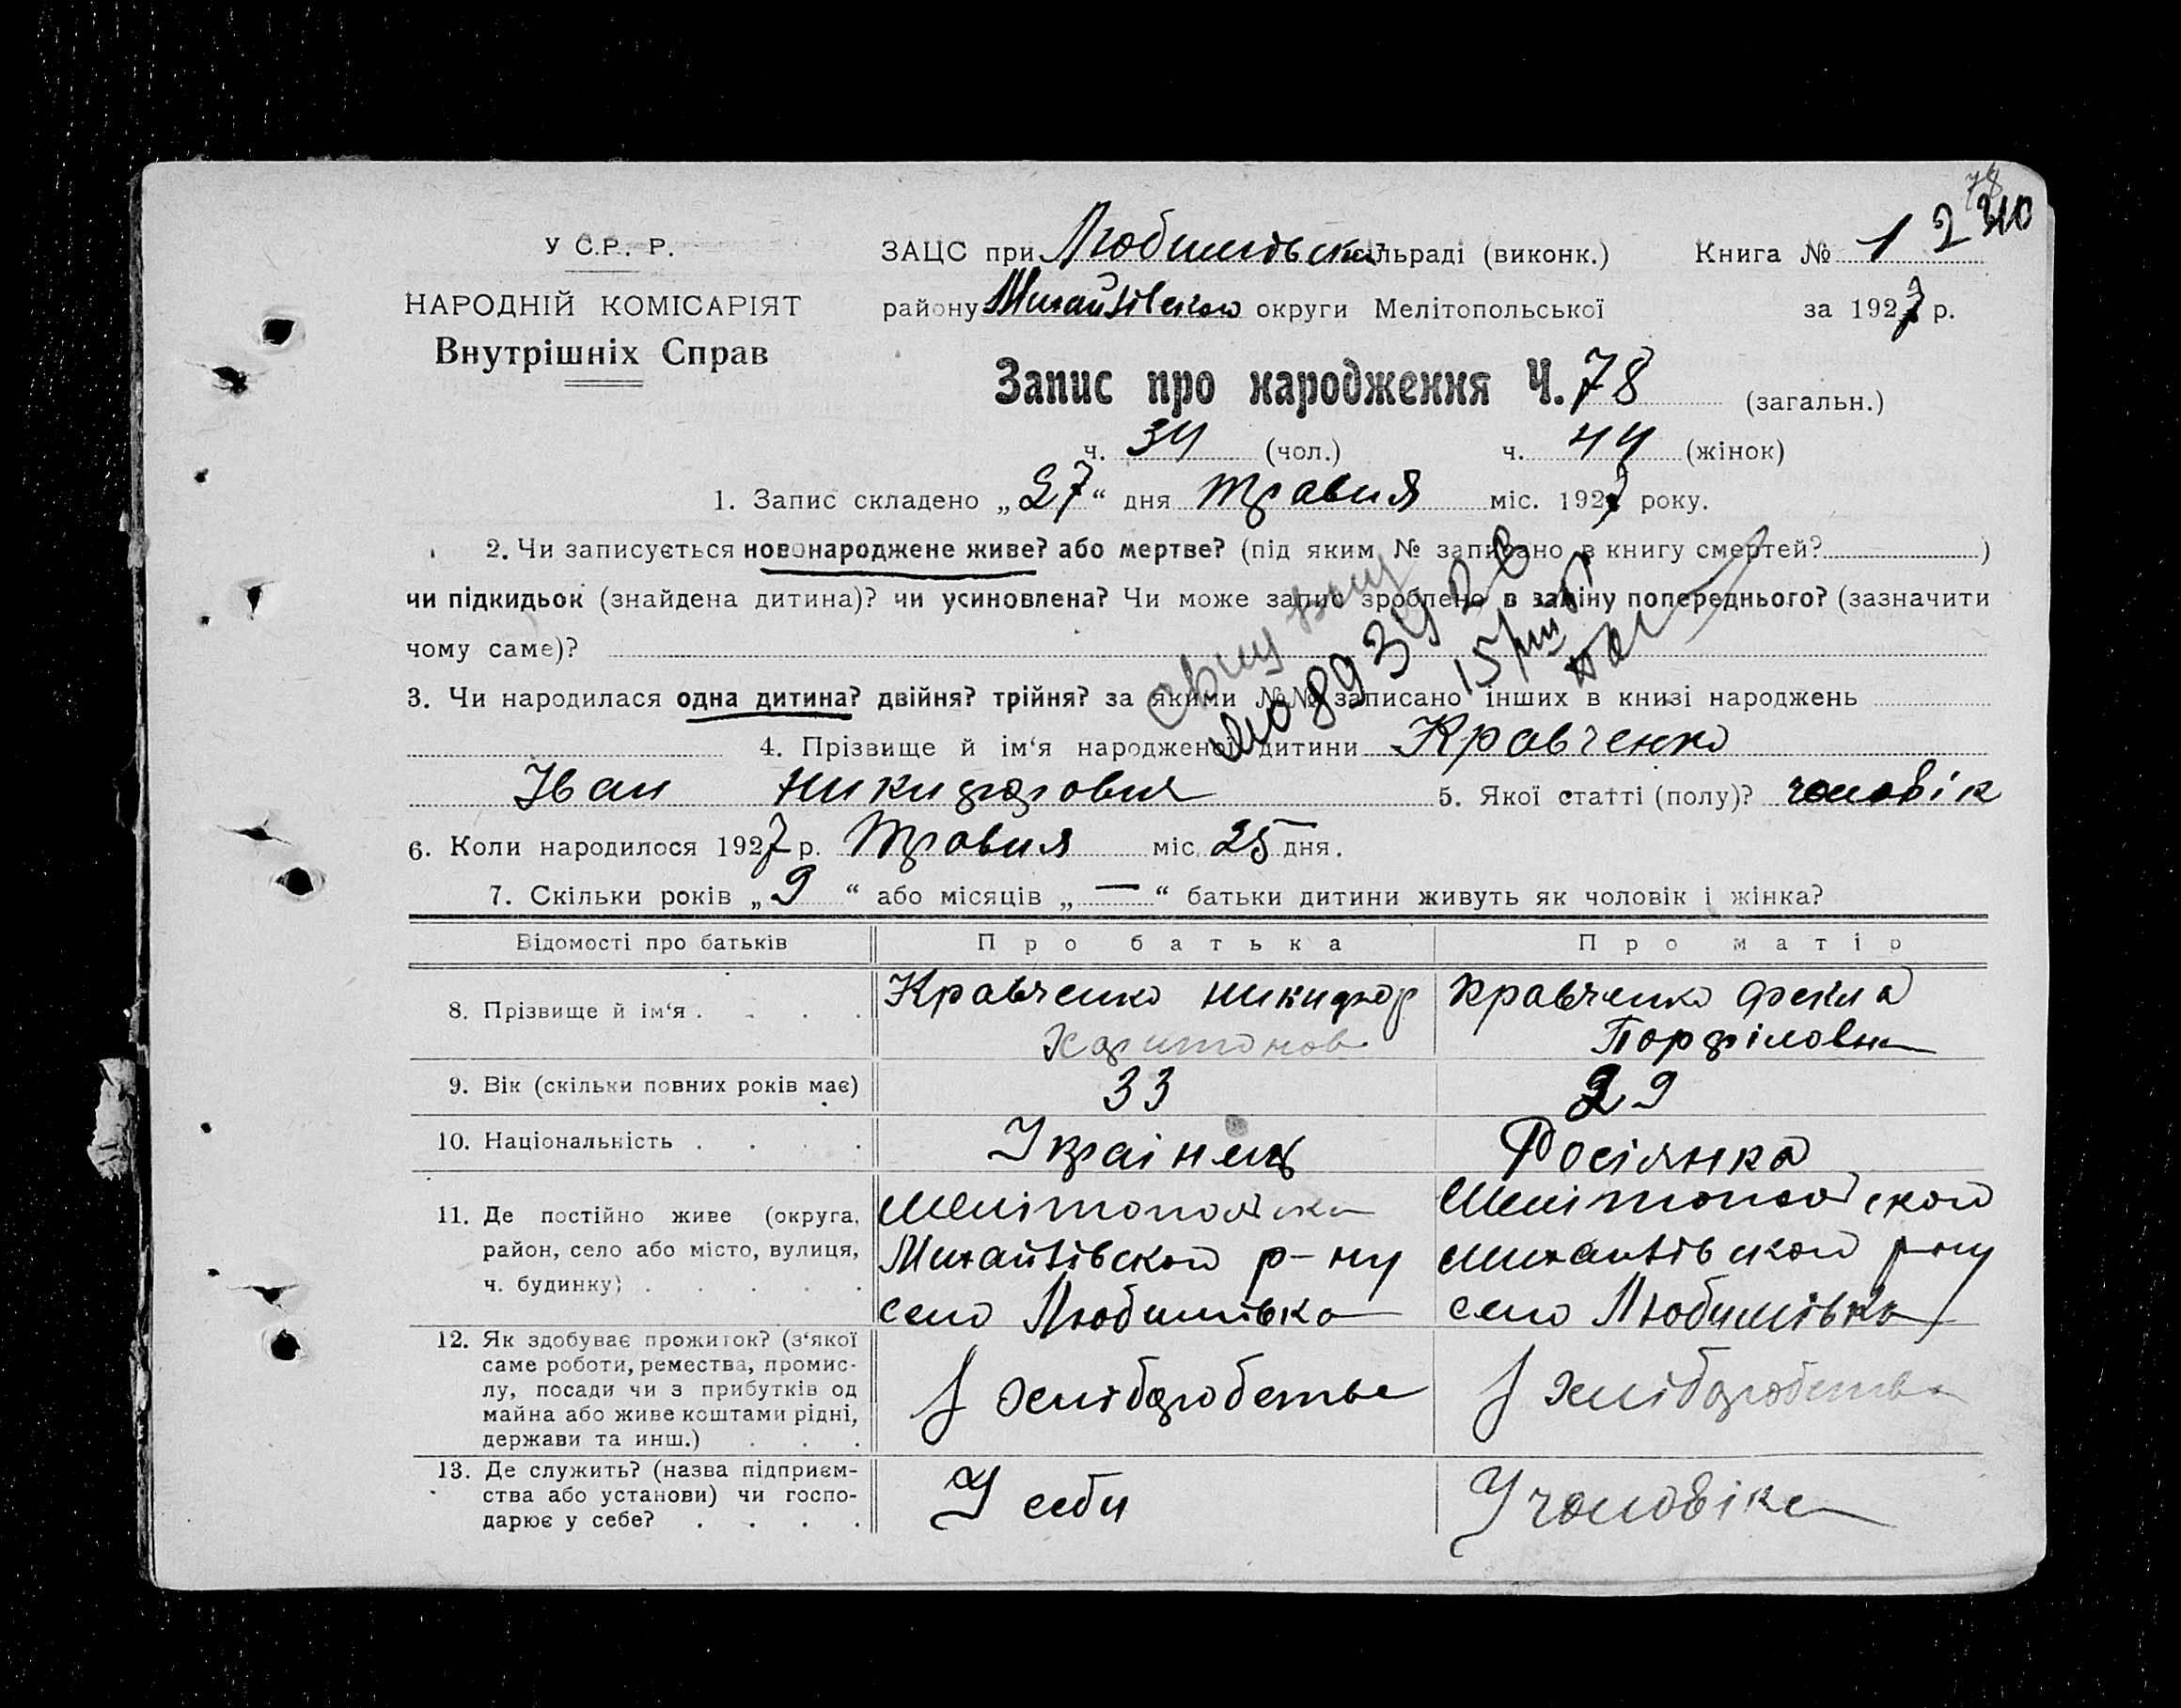 У С.Р. Р.
НАРОДНІЙ КОМІСАРІЯТ
Внутрішніх Справ
ЗАЦС при Любимівськ. сільраді (виконк.) Книга № 1
району Михайлівського округи Мелітопольської за 1927 р.
Запис про народження Ч. 78 (загальн.)
ч. 34 (чол.) ч. 44 (жінок)
1. Запис складено „27“ дня травня міс. 1927 року.
2. Чи записується новонароджене живе? або мертве? (під яким № записано в книгу смертей? )
чи підкидьок (знайдена дитина)? чи усиновлена? Чи може запис зроблено в заміну попереднього? (зазначити
чому саме)?
3. Чи народилася одна дитина? двійня? трійня? за якими №№ записано інших в книзі народжень
4. Прізвище й ім‘я народженої дитини Кравченко
Іван Никифорович 5. Якої статті (полу)? чоловік
6. Коли народилося 1927 р. Травня міс. 25 дня.
7. Скільки років „9“ або місяців „—“ батьки дитини живуть як чоловік і жінка?
Відомості про батьків Про батька Про матір
8. Прізвище й ім‘я . . . . Кравченко Никифор Кравченко Фекла
Харитонов Порфіловна
9. Вік (скільки повних років має) 33 29
10. Національність . . . . Українець Росіянка
11. Де постійно живе (округа, район, село або місто, вулиця, ч. будинку) . . . . .
Мелітопольска Мелітопольской
Михайлівской р-ну Михайлівской р-ну
село Любимівка село Любимівка
12. Як здобуває прожиток? (з‘якої
саме роботи, ремества, промис-
лу, посади чи з прибутків од
майна або живе коштами рідні,
держави та инш.) . . .
з хліборобства з хліборобства
13. Де служить? (назва підприєм-
ства або установи) чи госпо-
дарює у себе? . . . .
У себи У чоловіка